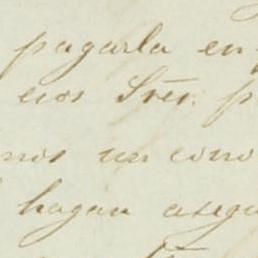 pagarla en
eios Sres. p
nos un cono
hagan asegu